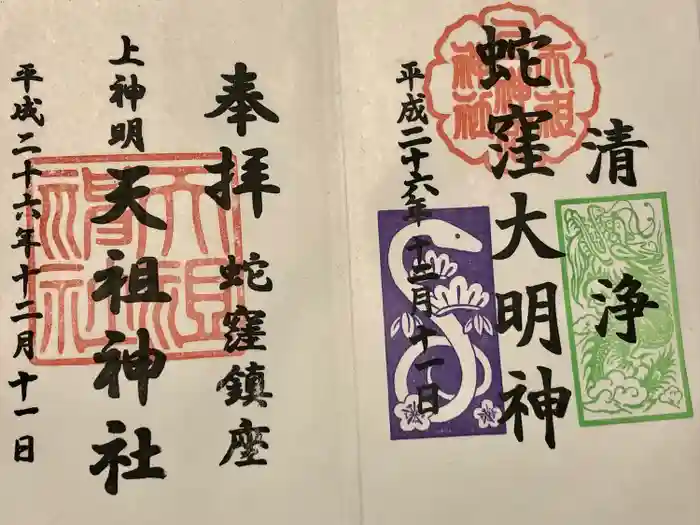 清浄
蛇窪大明神
平成二十六年十二月十一日
奉拝
蛇窪鎮座
上神明
天祖神社
平成二十六年十二月十一日